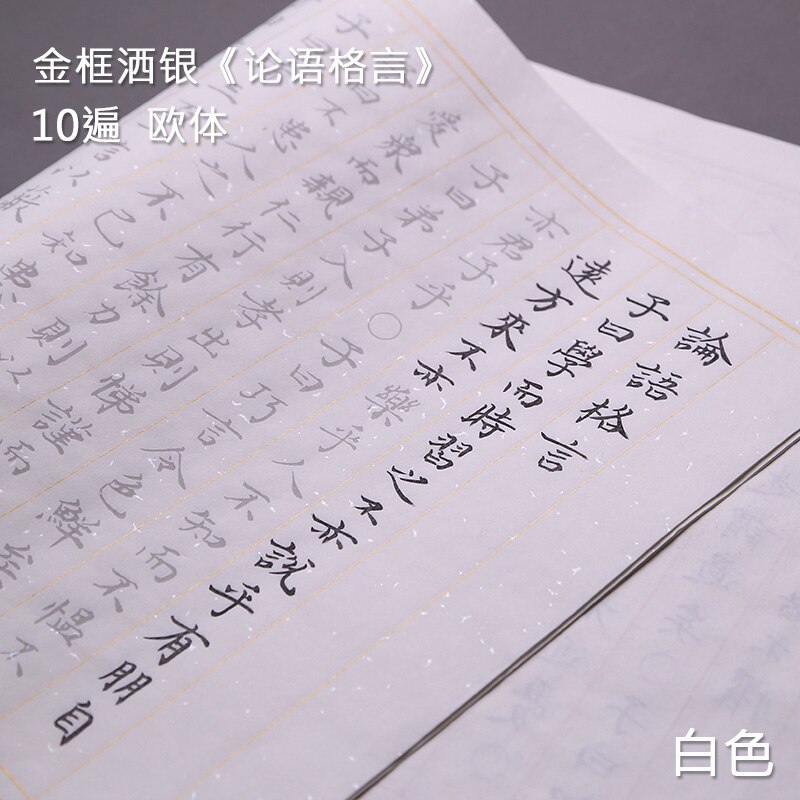 金框洒银《论语格言》
10遍 欧体
論語格言
子曰學而時習之不亦說乎有朋自
遠方來不亦樂乎人不知而不愠不
亦君子乎○子曰巧言令色鮮矣
子曰弟子入則孝出則悌謹而
愛衆而親仁行有餘力則以
子曰不患人之不己知患
言以蔽
白色